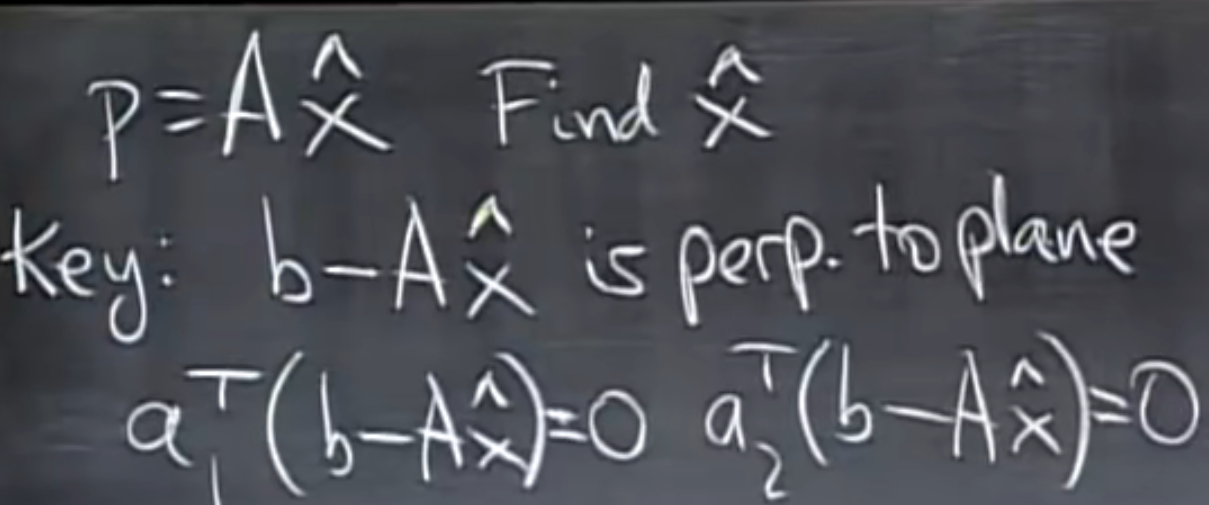 p=Ax̂ Find x̂
Key: b-Ax̂ is perp. to plane
a₁ᵀ(b-Ax̂)=0 a₂ᵀ(b-Ax̂)=0